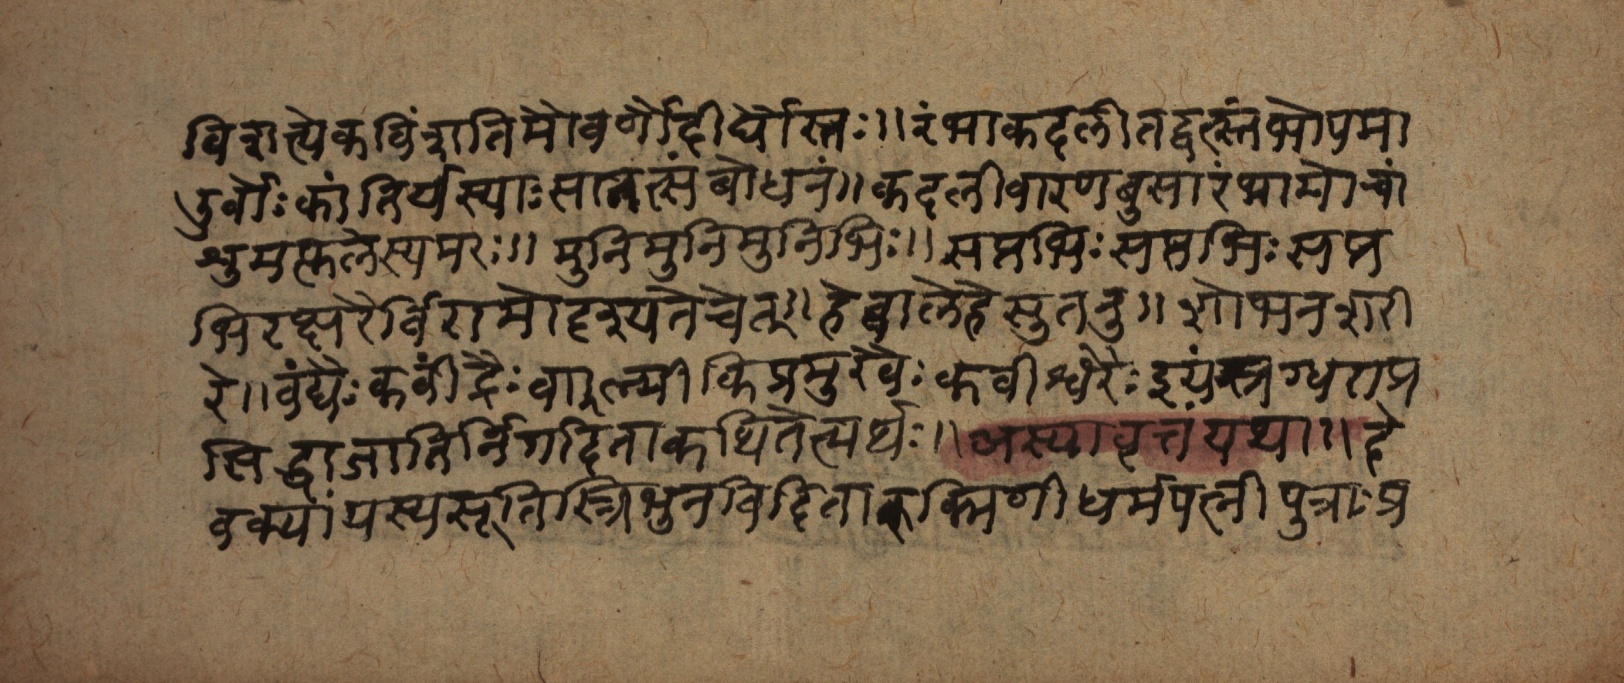 विशत्येकविंशतिमोवर्णौदीर्घौस्तः॥रंभाकदलीतद्वत्स्तंभोपमा
दुर्वोःकांतिर्यस्याःसातत्संबोधनं॥कदलीवारणबुसारंभामोचां
शुमत्फलेत्यमरः॥मुनिमुनिमुनिभिः॥सप्तभिःसप्तभिःसप्त
भिरक्षरैर्विरामोदृश्यतेचेत्॥हेबालेहेसुतनु॥शोभनशरी
रे॥वंद्यैःकवींद्रैःवाल्मीकिप्रमुखैःकवीश्वरैःइयंस्रग्धराप्र
सिद्धाजातिर्निगदिताकथितेत्यर्थः॥अस्यावृत्तंयथा॥दे
वक्यांयस्यसूतिस्त्रिभुनविदितारुक्मिणीधर्मपत्नीपुत्राःप्र